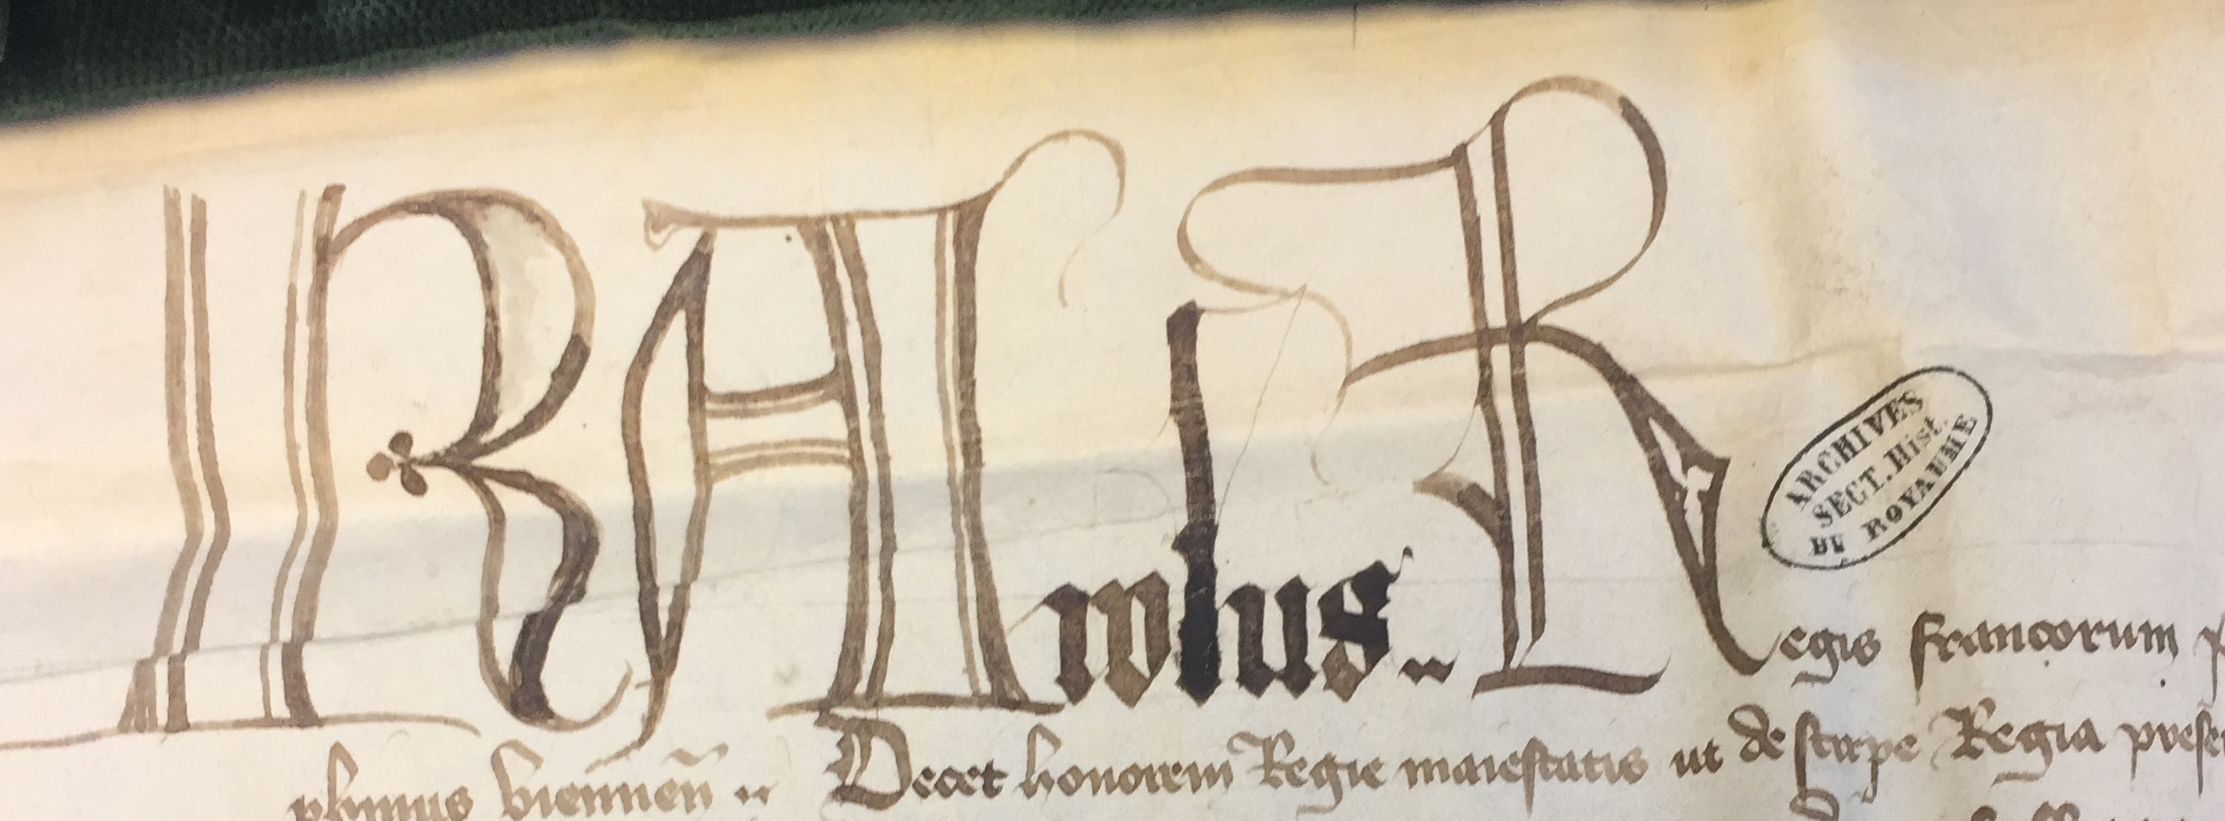 KArolus.. Regis francorum
ARCHIVES
SECT. Hist.
DU ROYAUME
phinus viennen̄ .. Decet honorem Regie maiestatis ut de stirpe Regia prese